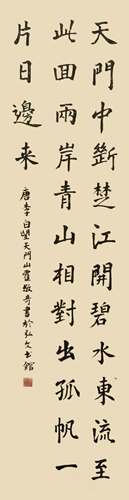 天門中斷楚江開碧水東流至
此回兩岸青山相對出孤帆一
片日邊来
唐李白望天門山霍敬奇書於弘文書館